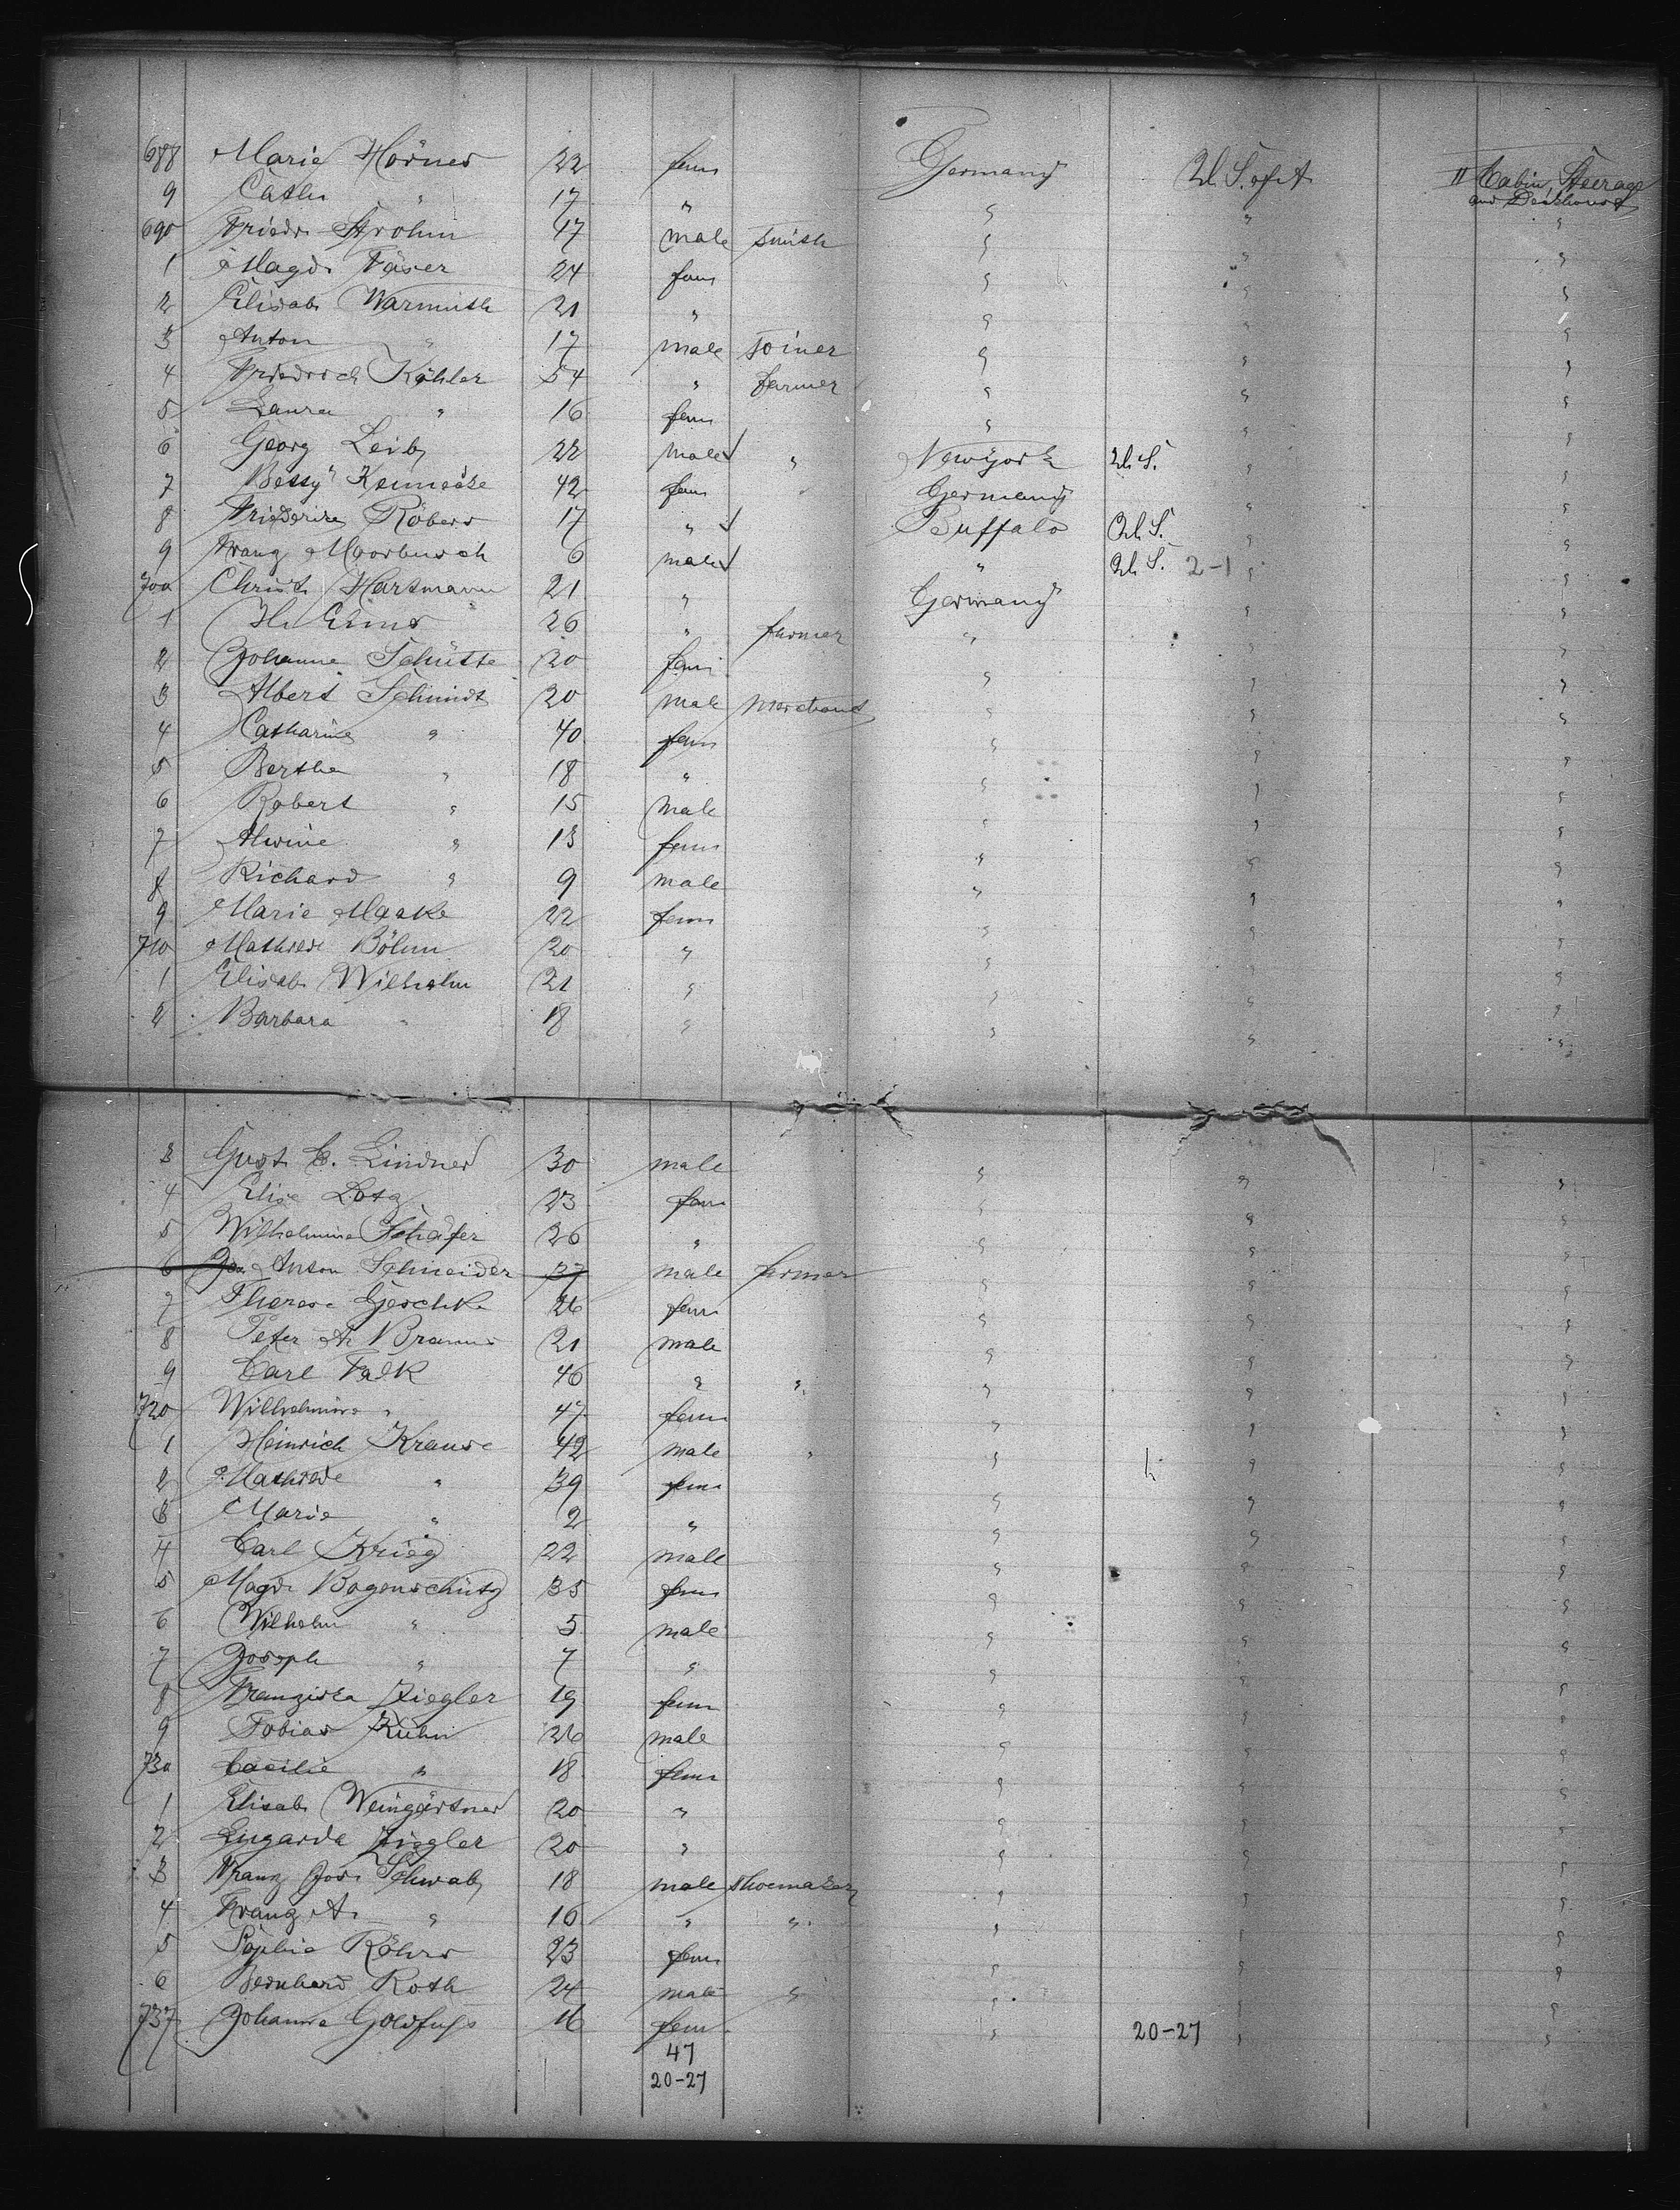 688 Marie Hörner 22 fem Germany U.S. of A. II Cabin, Steerage
and Deckhouse
9 Cath. " 17 " " " "
690 Friedr. Strohm 47 male smith " " "
1 Magd. Faser 24 fem " " "
2 Elisab. Warmuth 21 " " " "
3 Anton " 17 male Joiner " " "
4 Friedrich Köhler 54 " farmer " " "
5 Laura " 16 fem " " "
6 Georg Leib 22 male " Newyork U.S. " "
7 Betty 42 fem Germany " "
8 Friederike Röbers 17 " Buffalo U.S. " "
9 Franz Moorbusch 6 male " U.S. 2-1 " "
700 Christ. Hartmann 21 " Germany " "
1 H. Eims 26 " farmer " " "
2 Johanne Schütte 20 fem " " "
3 Albert Schmidt 30 male merchant " " "
4 Catharine " 40 fem " " "
5 Bertha " 18 " " " "
6 Robert " 15 male " " "
7 Alwine " 13 fem " " "
8 Richard " 9 male " " "
9 Marie Maake 22 fem " " "
710 Mathilde Böhm 20 " " " "
1 Elisab. Wilhelm 21 " " " "
2 Barbara " 18 " " " "
3 Gust. C. Lindner 30 male " " "
4 Elise Lotz 23 fem " " "
5 Wilhelmine Schäfer 26 " " " "
6 Jos. Anton Schneider 37 male farmer " " "
7 Therese Geschke 26 fem " " "
8 Peter A. 21 male " " "
9 Carl Falk 46 " " " " "
720 Wilhelmine " 47 fem " " "
1 Heinrich Krause 42 male " " " "
2 Mathilde " 39 fem " " "
3 Marie " 2 " " " "
4 Carl Krieg 22 male " " "
5 Magd. Bogenschütz 35 fem " " "
6 Wilhelm " 5 male " " "
7 Joseph " 7 " " " "
8 Franziska Ziegler 19 fem " " "
9 Tobias Kuhn 26 male " " "
730 Cäcilie " 18 fem " " "
1 Elisab. Weingärtner 20 " " " "
2 Lugarda Ziegler 20 " " " "
3 Franz Jos. Schwab 18 male shoemaker " " "
4 Franz A. " 16 " " " " "
5 Sophie Röhrs 23 fem " " "
6 Bernhard Roth 24 male " " " "
737 Johanna Goldfuß 16 fem " 20-27 " "
47
20-27